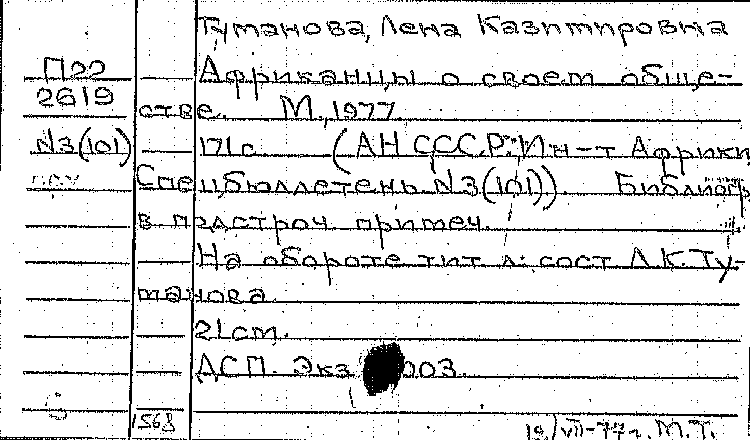 Туманова, Лена Казимировна
П22 Африканцы о своем обще-
2619 стве. М., 1977.
N3(101) 171с. (АН СССР. Ин-т Африки
Спецбюллетень N3(101)). Библиогр
в подстроч. примеч.
На обороте тит л: сост Л.К.Ту-
манова.
21см.
ДСП. Экз 003.
1568 19/VII-77г. М.Т.